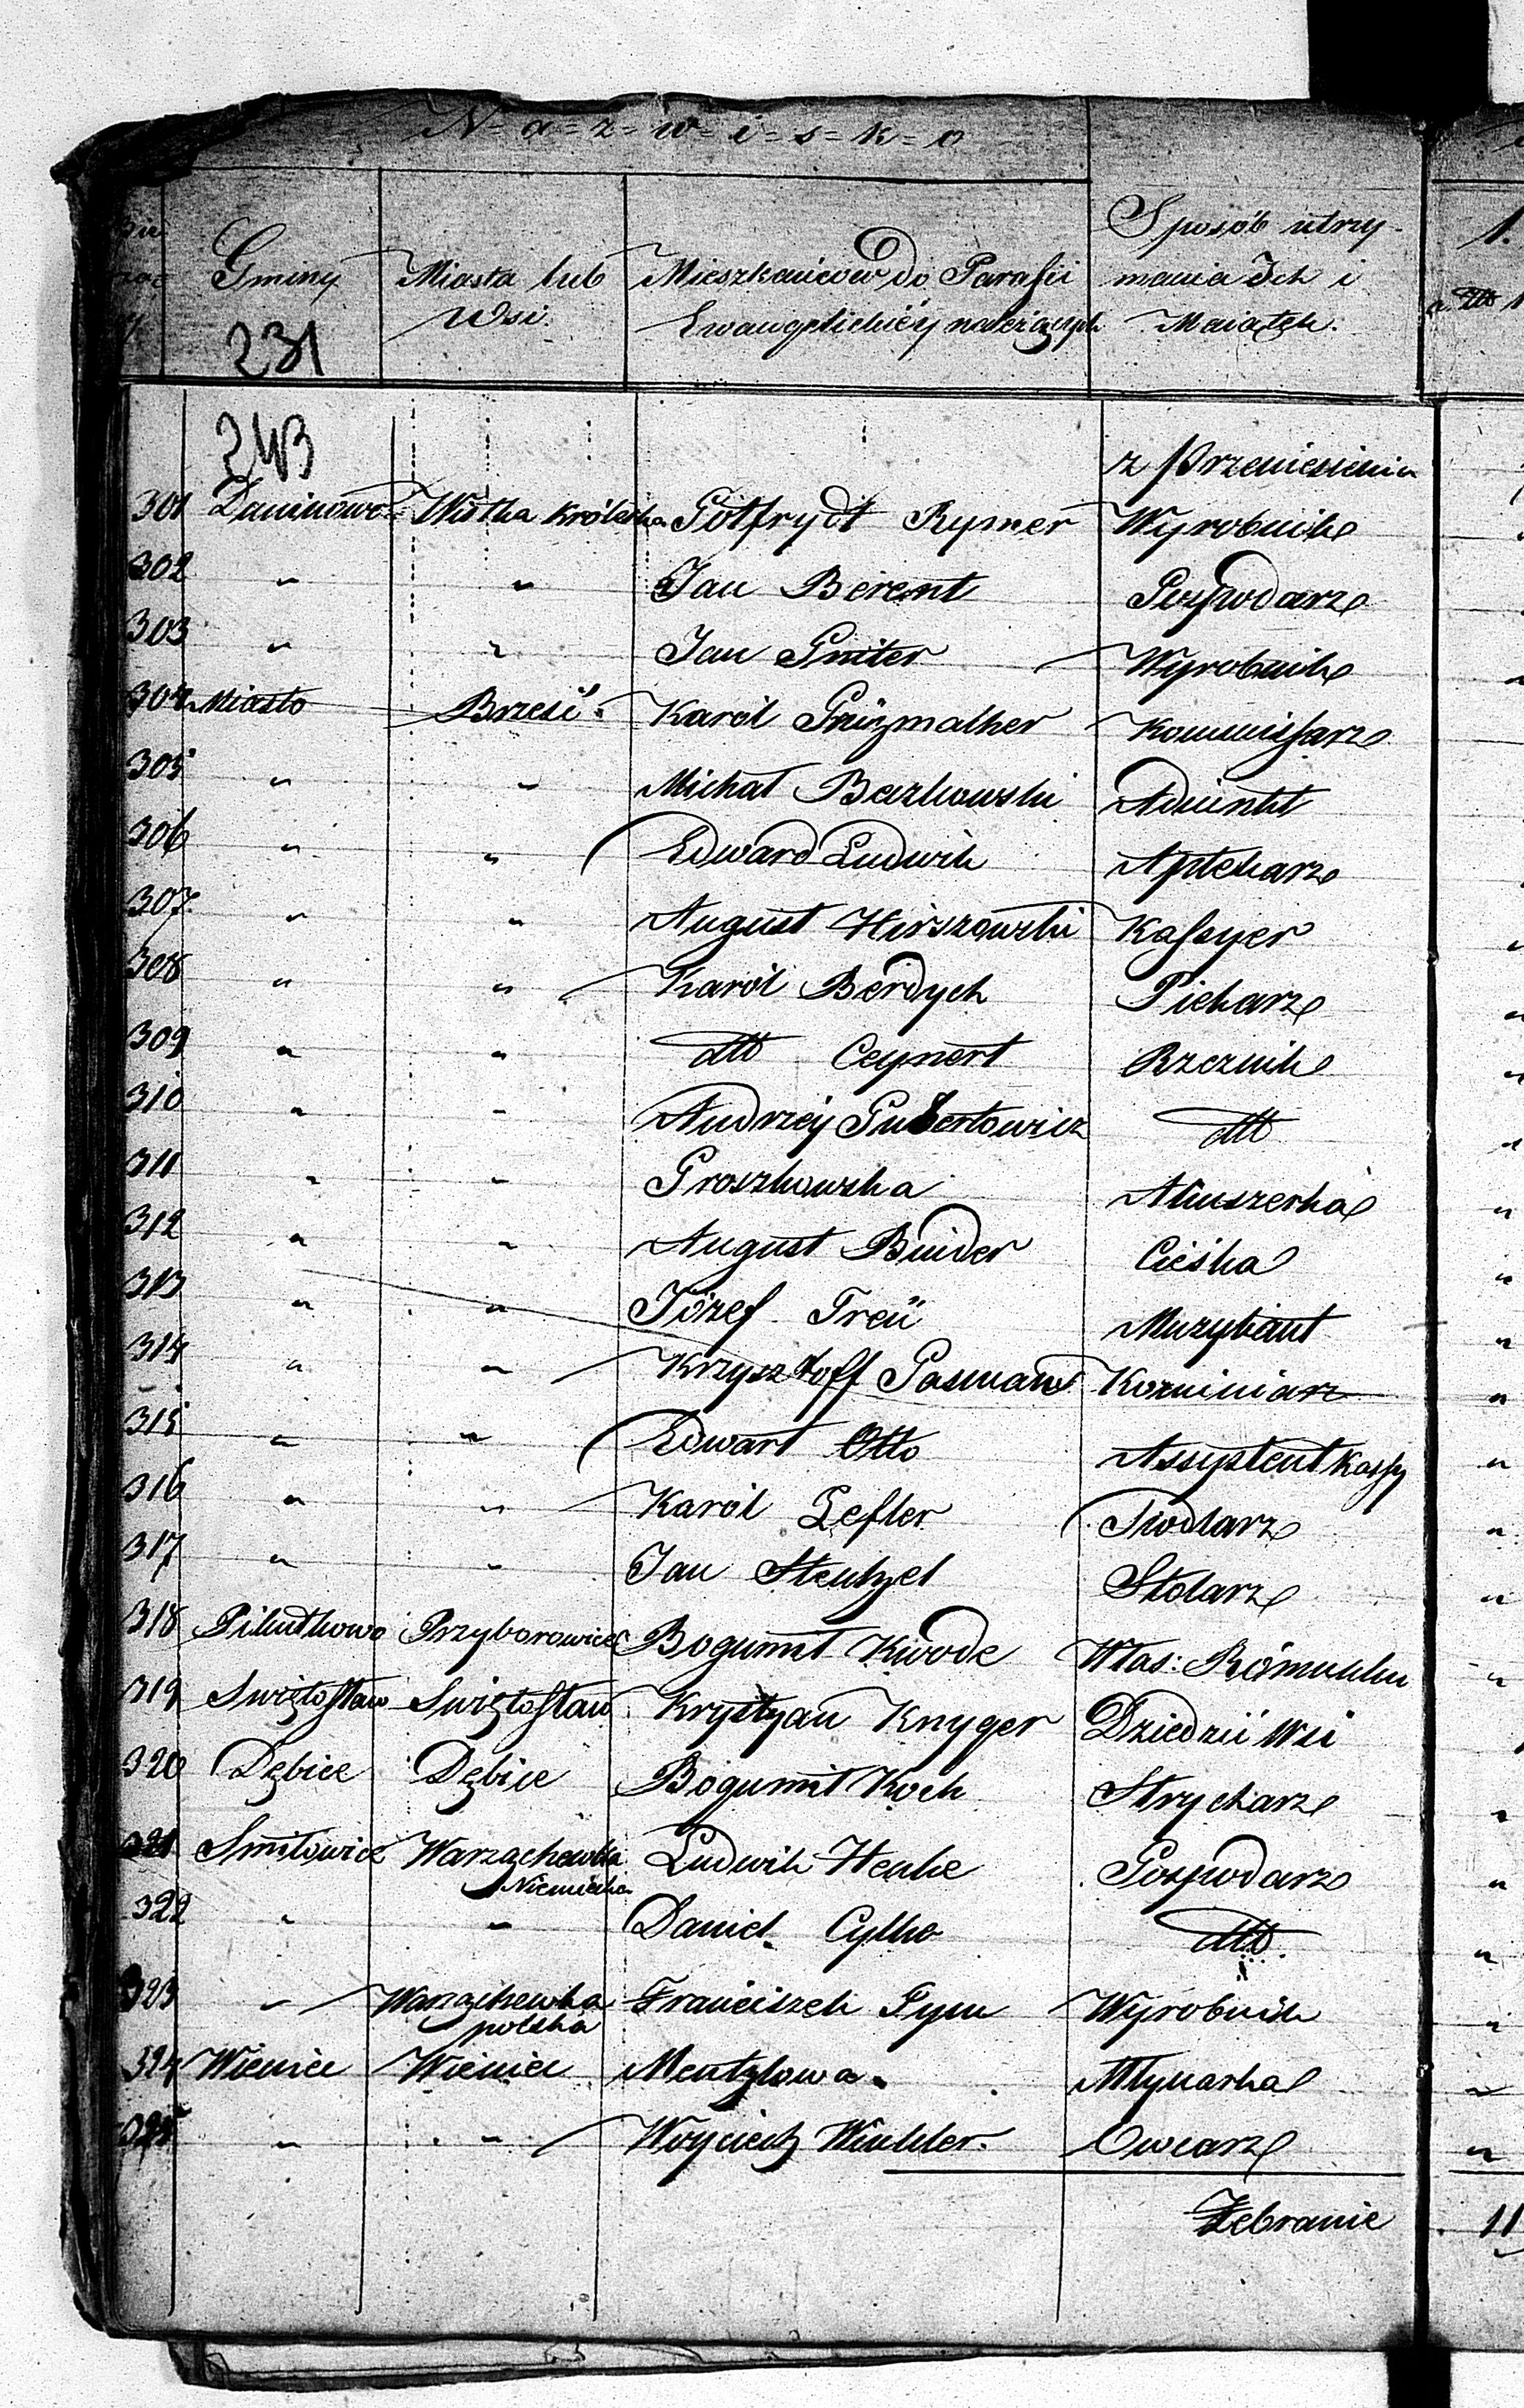 N=a=z=w=i=s=k=o
Gminy Miasta lub Wsi. Mieszkańców do Parafii Ewangelickiéy należących Sposób utrzymania Ich i Maiątek.
231
243
z Przeniesienia
301 Daninowo Wólka Królewska Gotfrydt Rymer Wyrobnik
302 " " Jan Berent Gospodarz
303 " " Jan Gniter Wyrobnik
304 Miasto Brześć Karól Grüzmalher Kommissarz
305 " " Michał Bazkowski Adiunkt
306 " " Edward Ludwik Aptekarz
307. " " August Hirszowski Kassyer
308 " " Karól Berdych Piekarz
309 " " dtto Ceynert Rzeznik
310 " " Andrzéy Gubertowicz dtto
311 " " Groszkowska Akuszerka
312 " " August Binder Cieśka
313 " " Józef Treü Muzykant
314 " " Krzysztoff Gasman Kominiarz
315 " " Edwart Otto Assystent Kassy
316 " " Karól Lefler Siodlarz
317 " " Jan Stentzel Stolarz
318 Pikutkowo Przyborowice Bogumił Kwode Włas:
319 Swiętosław Swiętosław Krystyan Knyger Dziedzic Wsi
320 Dębice Dębice Bogumił Koch Strycharz
321 Smiłowice Warząchewka Niemiecka Ludwik Henke Gospodarz
322 " " Daniel Cylke dtto.
323 " Warząchewka polska Franciszek Tym Wyrobnik
324 Wieniec Wieniec Mentzlowa Młynarka
325 " " Woyciech Winkler. Owczarz
Zebranie 11